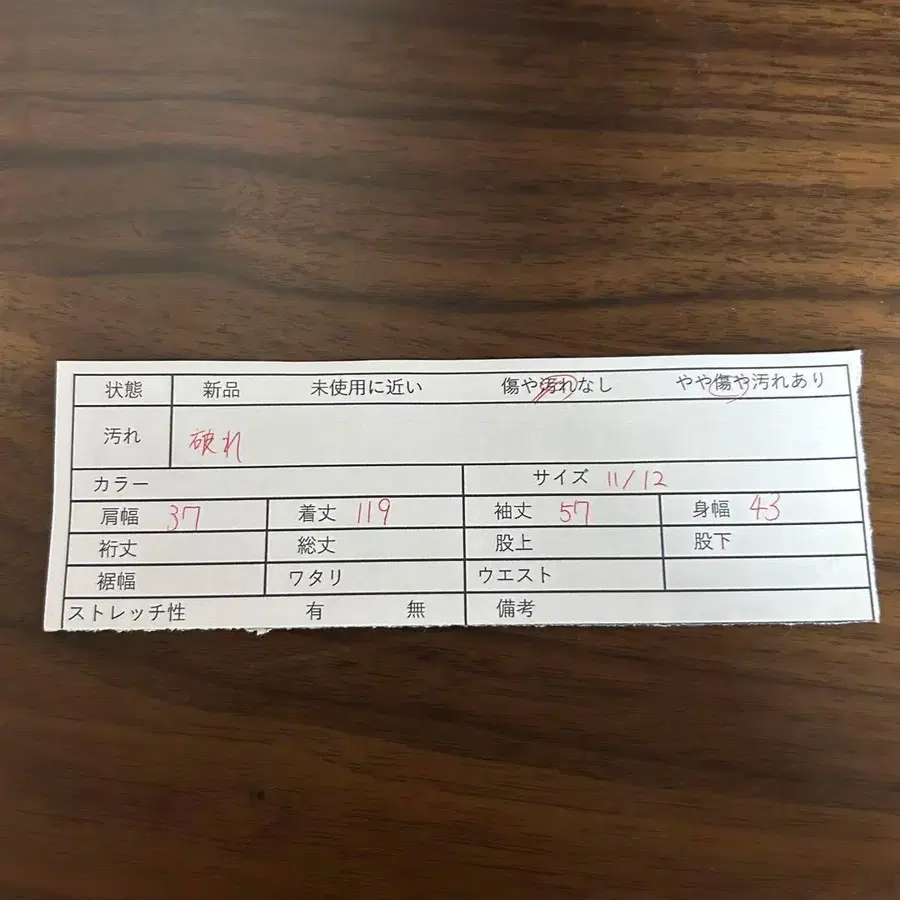 状態 新品 未使用に近い 傷や汚れなし やや傷や汚れあり
汚れ 破れ
カラー サイズ 11/12
肩幅 37 着丈 119 袖丈 57 身幅 43
裄丈 総丈 股上 股下
裾幅 ワタリ ウエスト
ストレッチ性 有 無 備考